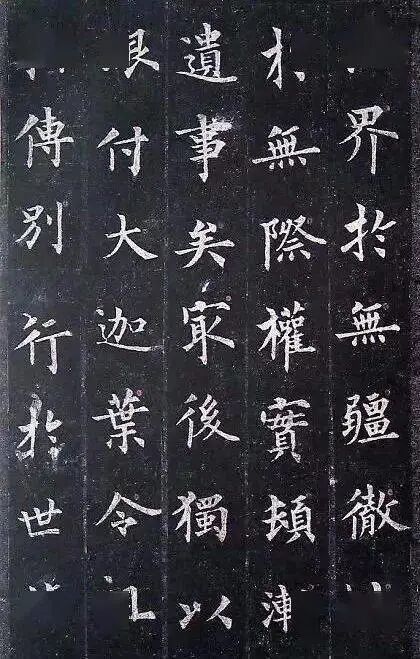 界於無疆徹
無際權實頓
遺事矣㝡後獨以
付大迦葉令
傳別行於世